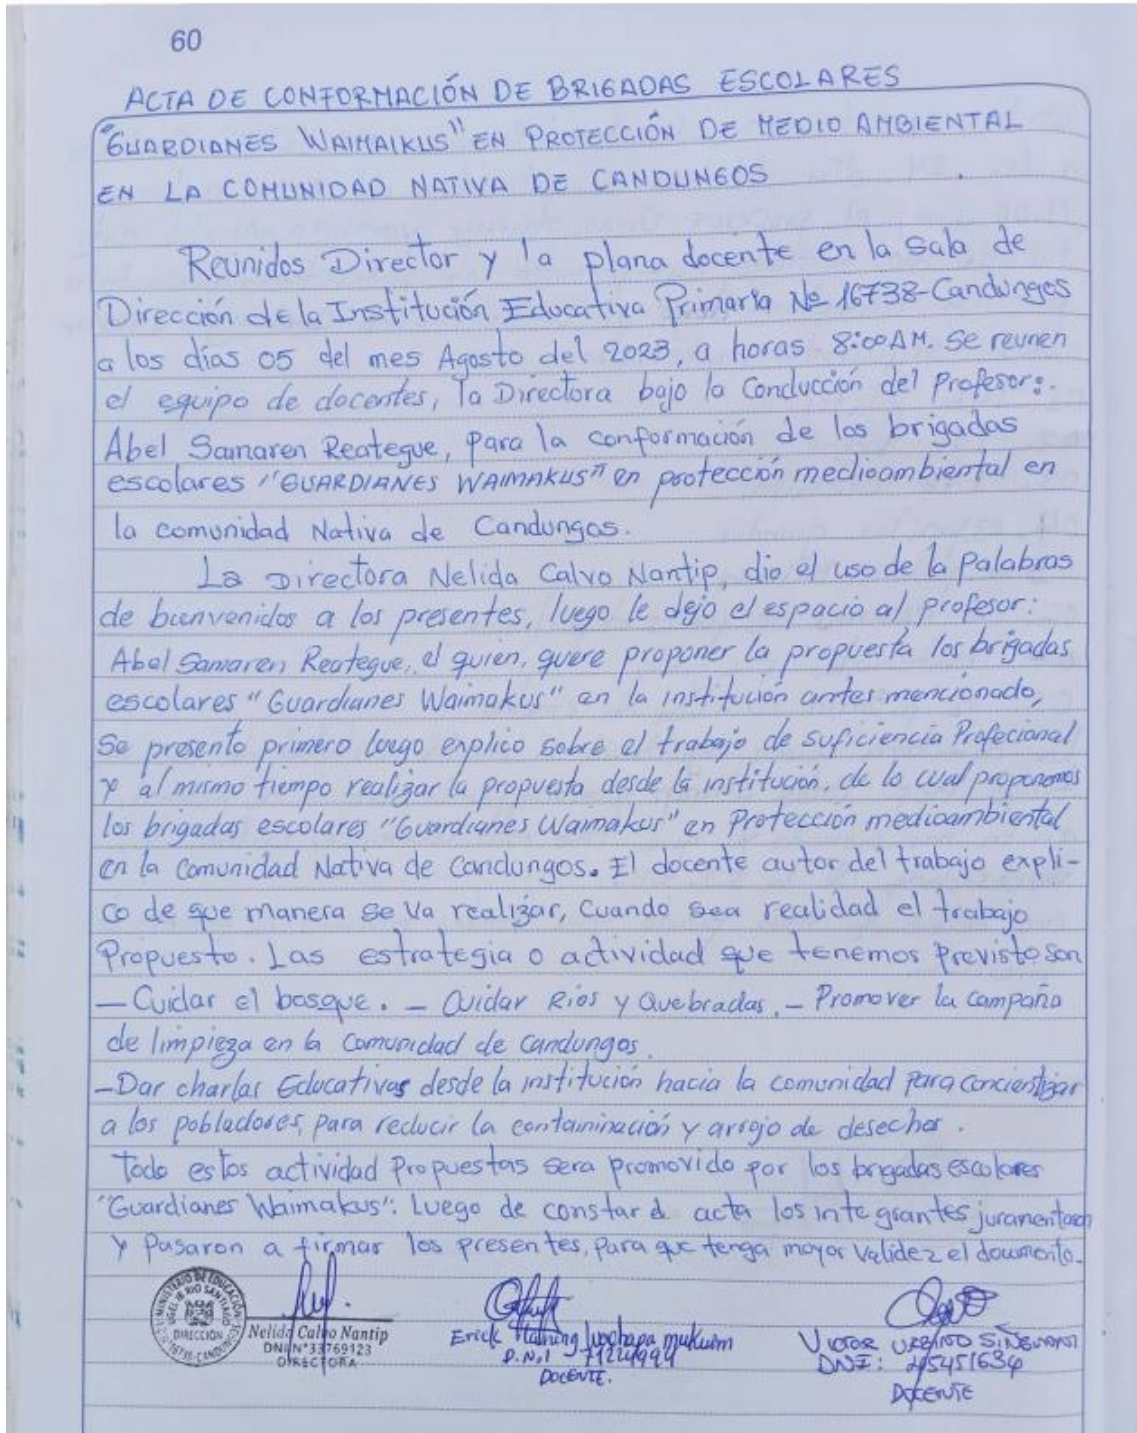 60
ACTA DE CONFORMACIÓN DE BRIGADAS ESCOLARES
"GUARDIANES WAIMAIKUS" EN PROTECCIÓN DE MEDIO AMBIENTAL
EN LA COMUNIDAD NATIVA DE CANDUNGOS
Reunidos Director y la plana docente en la sala de
Dirección de la Institución Educativa Primaria Nº 16738-Candungos
a los días 05 del mes Agosto del 2023, a horas 8:00AM. Se reunen
el equipo de docentes, la Directora bajo la Conducción del Profesor:.
Abel Samaren Reategue, para la conformación de las brigadas
escolares "GUARDIANES WAIMAKUS" en protección medioambiental en
la comunidad Nativa de Candungos.
La Directora Nelida Calvo Nantip, dio el uso de la Palabras
de bienvenidos a los presentes, luego le dejo el espacio al profesor:
Abel Samaren Reategue, el quien, quere proponer la propuesta los brigadas
escolares "Guardianes Waimakus" en la institución antes mencionado,
Se presento primero luego explico sobre el trabajo de Suficiencia Profecional
y al mismo tiempo realizar la propuesta desde la institución. de lo cual proponemos
los brigadas escolares "Guardianes Waimakus" en Protección medioambiental
en la Comunidad Nativa de Candungos. El docente autor del trabajo expli-
co de que manera se va realizar, Cuando sea realidad el trabajo
Propuesto. Las estrategia o actividad que tenemos Previsto son
— Cuidar el bosque. — Cuidar Ríos y Quebradas. — Promover la Campaña
de limpieza en la Comunidad de Candungos.
—Dar charlas Educativas desde la institución hacia la comunidad para concientizar
a los pobladores, para reducir la contaminación y arrojo de desechos.
Todo estos actividad Propuestas sera promovido por los brigadas escolares
"Guardianes Waimakus". Luego de constar acta los integrantes juramentaron
y Pasaron a firmar los presentes, para que tenga mayor validez el documento.
MINISTERIO DE EDUCACIÓN
UGEL RIO SANTIAGO
DIRECCIÓN
Nelida Calvo Nantip
DNI N° 33769123
DIRECTORA
Erick mukuim
D.N.I 71224994
DOCENTE.
VICTOR
DNI: 45451634
DOCENTE